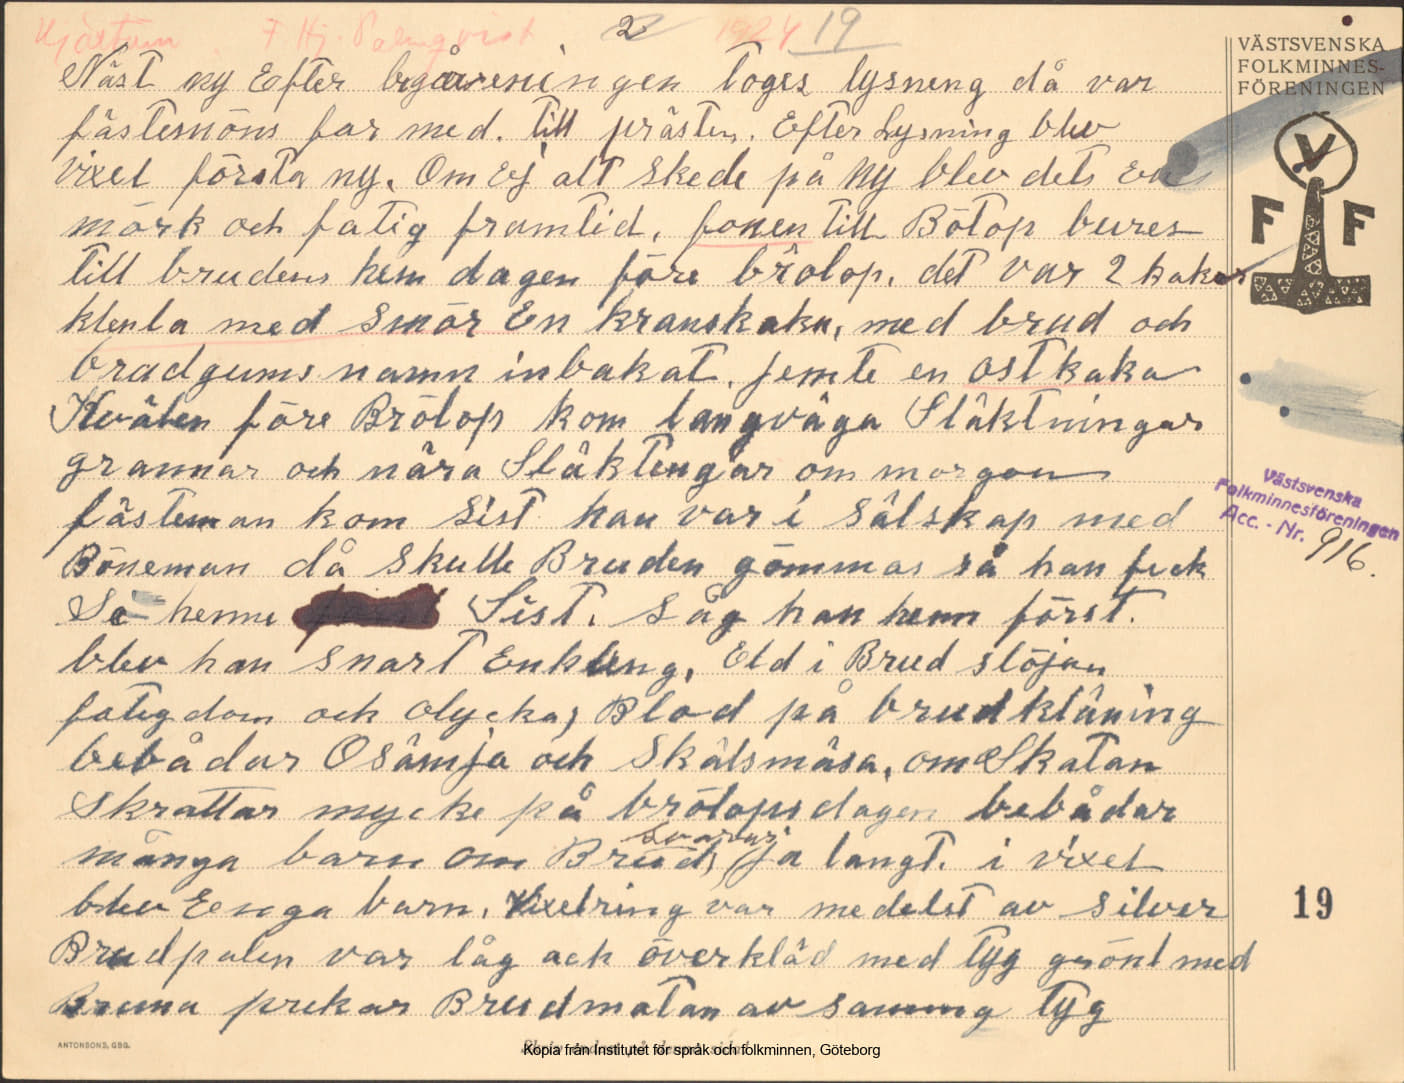 Hjärtum. F. Hj. Palmqvist 2 1924 19
VÄSTSVENSKA
FOLKMINNES-
FÖRENINGEN
V
F F
Näst ny Efter begärningen toges lysneng då var
fästemöns far med. till prästen. Efter Lysning blev
vixel första ny. Om Ej alt Skede på Ny blev dets En
mörk och fatig framtid, fonen till Bötop bures
till brudens hem dagen före brölop. det var 2 kakor
klenla med Smör En kranskaka, med brud och
brudgums namn inbakat, jemte en ostkaka
Kvälen före Brölop kom langväga Släktningar
grannar och nära Släktengar om morgon
fästeman kom Sist han var i Sälskap med
Böneman då Skulle Bruden gömmas så han feck
Se henne Sist. Såg han henn först.
blev han Snart Enkleng, Eld i Brud slöjan
fatigdom och olycka, Blod på brudkläning
bebådar Osämja och Skälsmäsa, om Skatan
Skrattar mycke på brölopsdagen bebådar
många barn om Brud, svarar ja langt. i vixel
blev Eenga barn. Vixelring var medelst av Silver
Brudpalen var låg ack överkläd med tyg grönt med
Bruna prekar Brudmatan av samma Tyg
Västsvenska
Folkminnesföreningen
Acc. - Nr. 916.
19
ANTONSONS, GBG.
Kopia från Institutet för språk och folkminnen, Göteborg